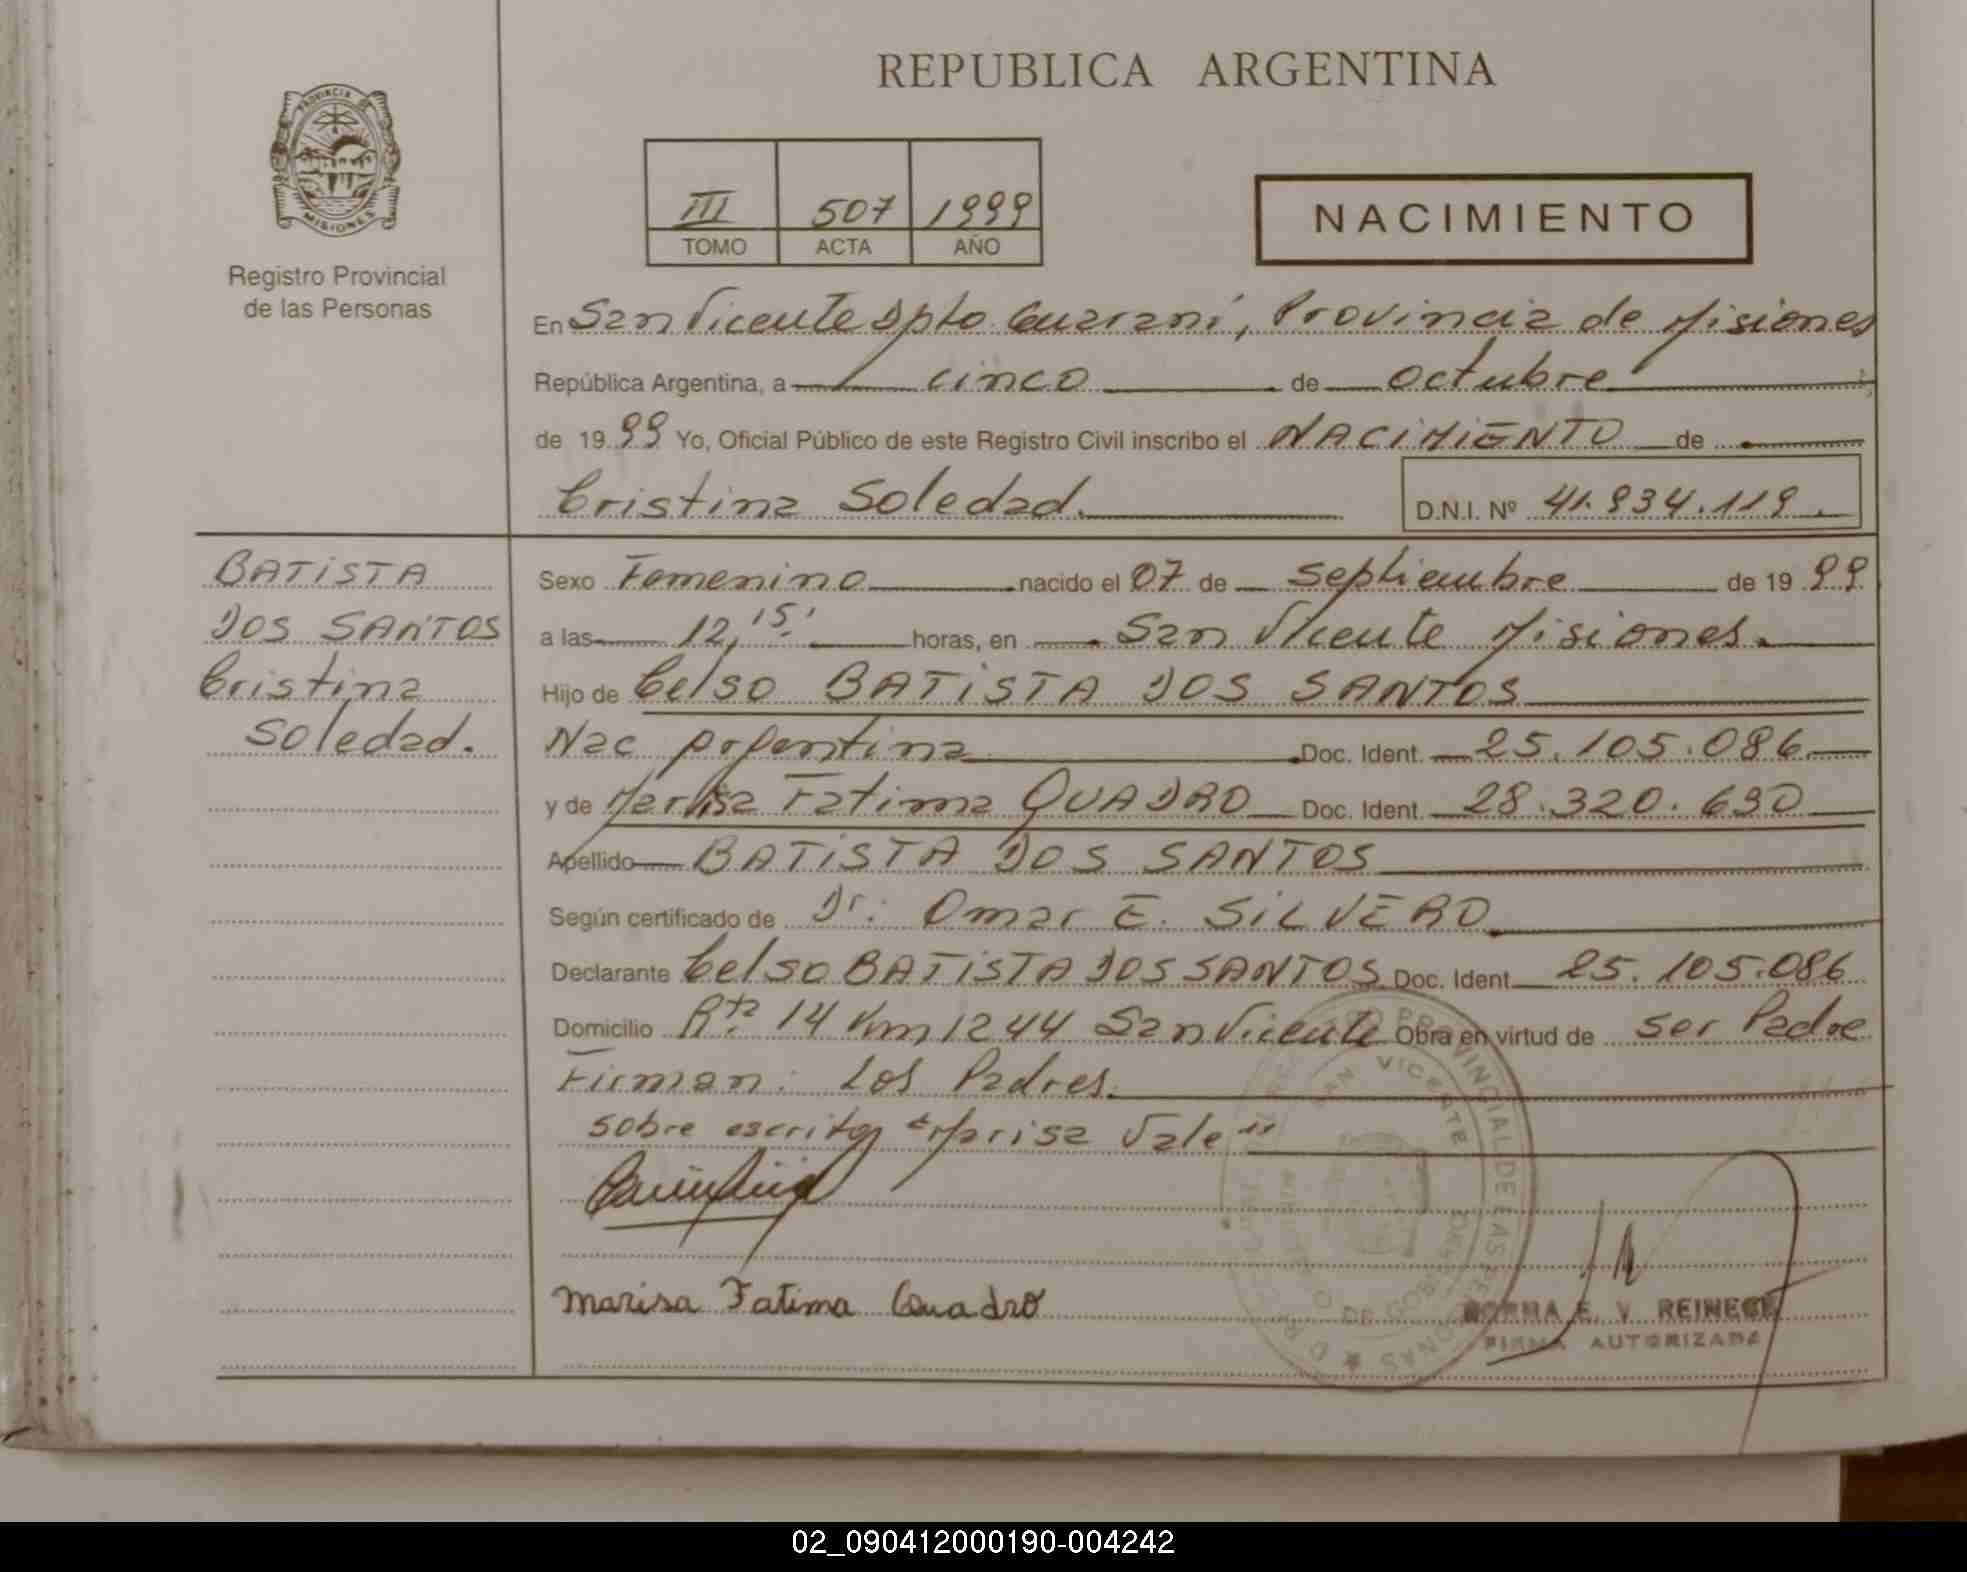 REPUBLICA ARGENTINA
PROVINCIA DE
MISIONES
Registro Provincial
de las Personas
III 507 1999
TOMO ACTA AÑO
NACIMIENTO
En San Vicente Dpto Guaraní, Provincia de Misiones
República Argentina, a cinco de octubre
de 1999 Yo, Oficial Público de este Registro Civil inscribo el NACIMIENTO de
Cristina Soledad.
D.N.I. Nº 41.934.119.
BATISTA
DOS SANTOS
Cristina
Soledad.
Sexo Femenino nacido el 07 de Septiembre de 1999
a las 12,15' horas, en San Vicente Misiones.
Hijo de Celso BATISTA DOS SANTOS
Nac Argentina Doc. Ident. 25.105.086
y de Marisa Fatima QUADRO Doc. Ident. 28.320.690
Apellido BATISTA DOS SANTOS
Según certificado de Dr. Omar E. SILVERO
Declarante Celso BATISTA DOS SANTOS Doc. Ident. 25.105.086
Domicilio Rta. 14 Km 1244 San Vicente Obra en virtud de ser Padre
Firman: Los Padres.
sobre escrito "Marisa Vale"
Marisa Fatima Quadro
NORMA E. V. REINECK
FIRMA AUTORIZADA
PROVINCIAL DE LAS PERSONAS
SAN VICENTE
02_090412000190-004242